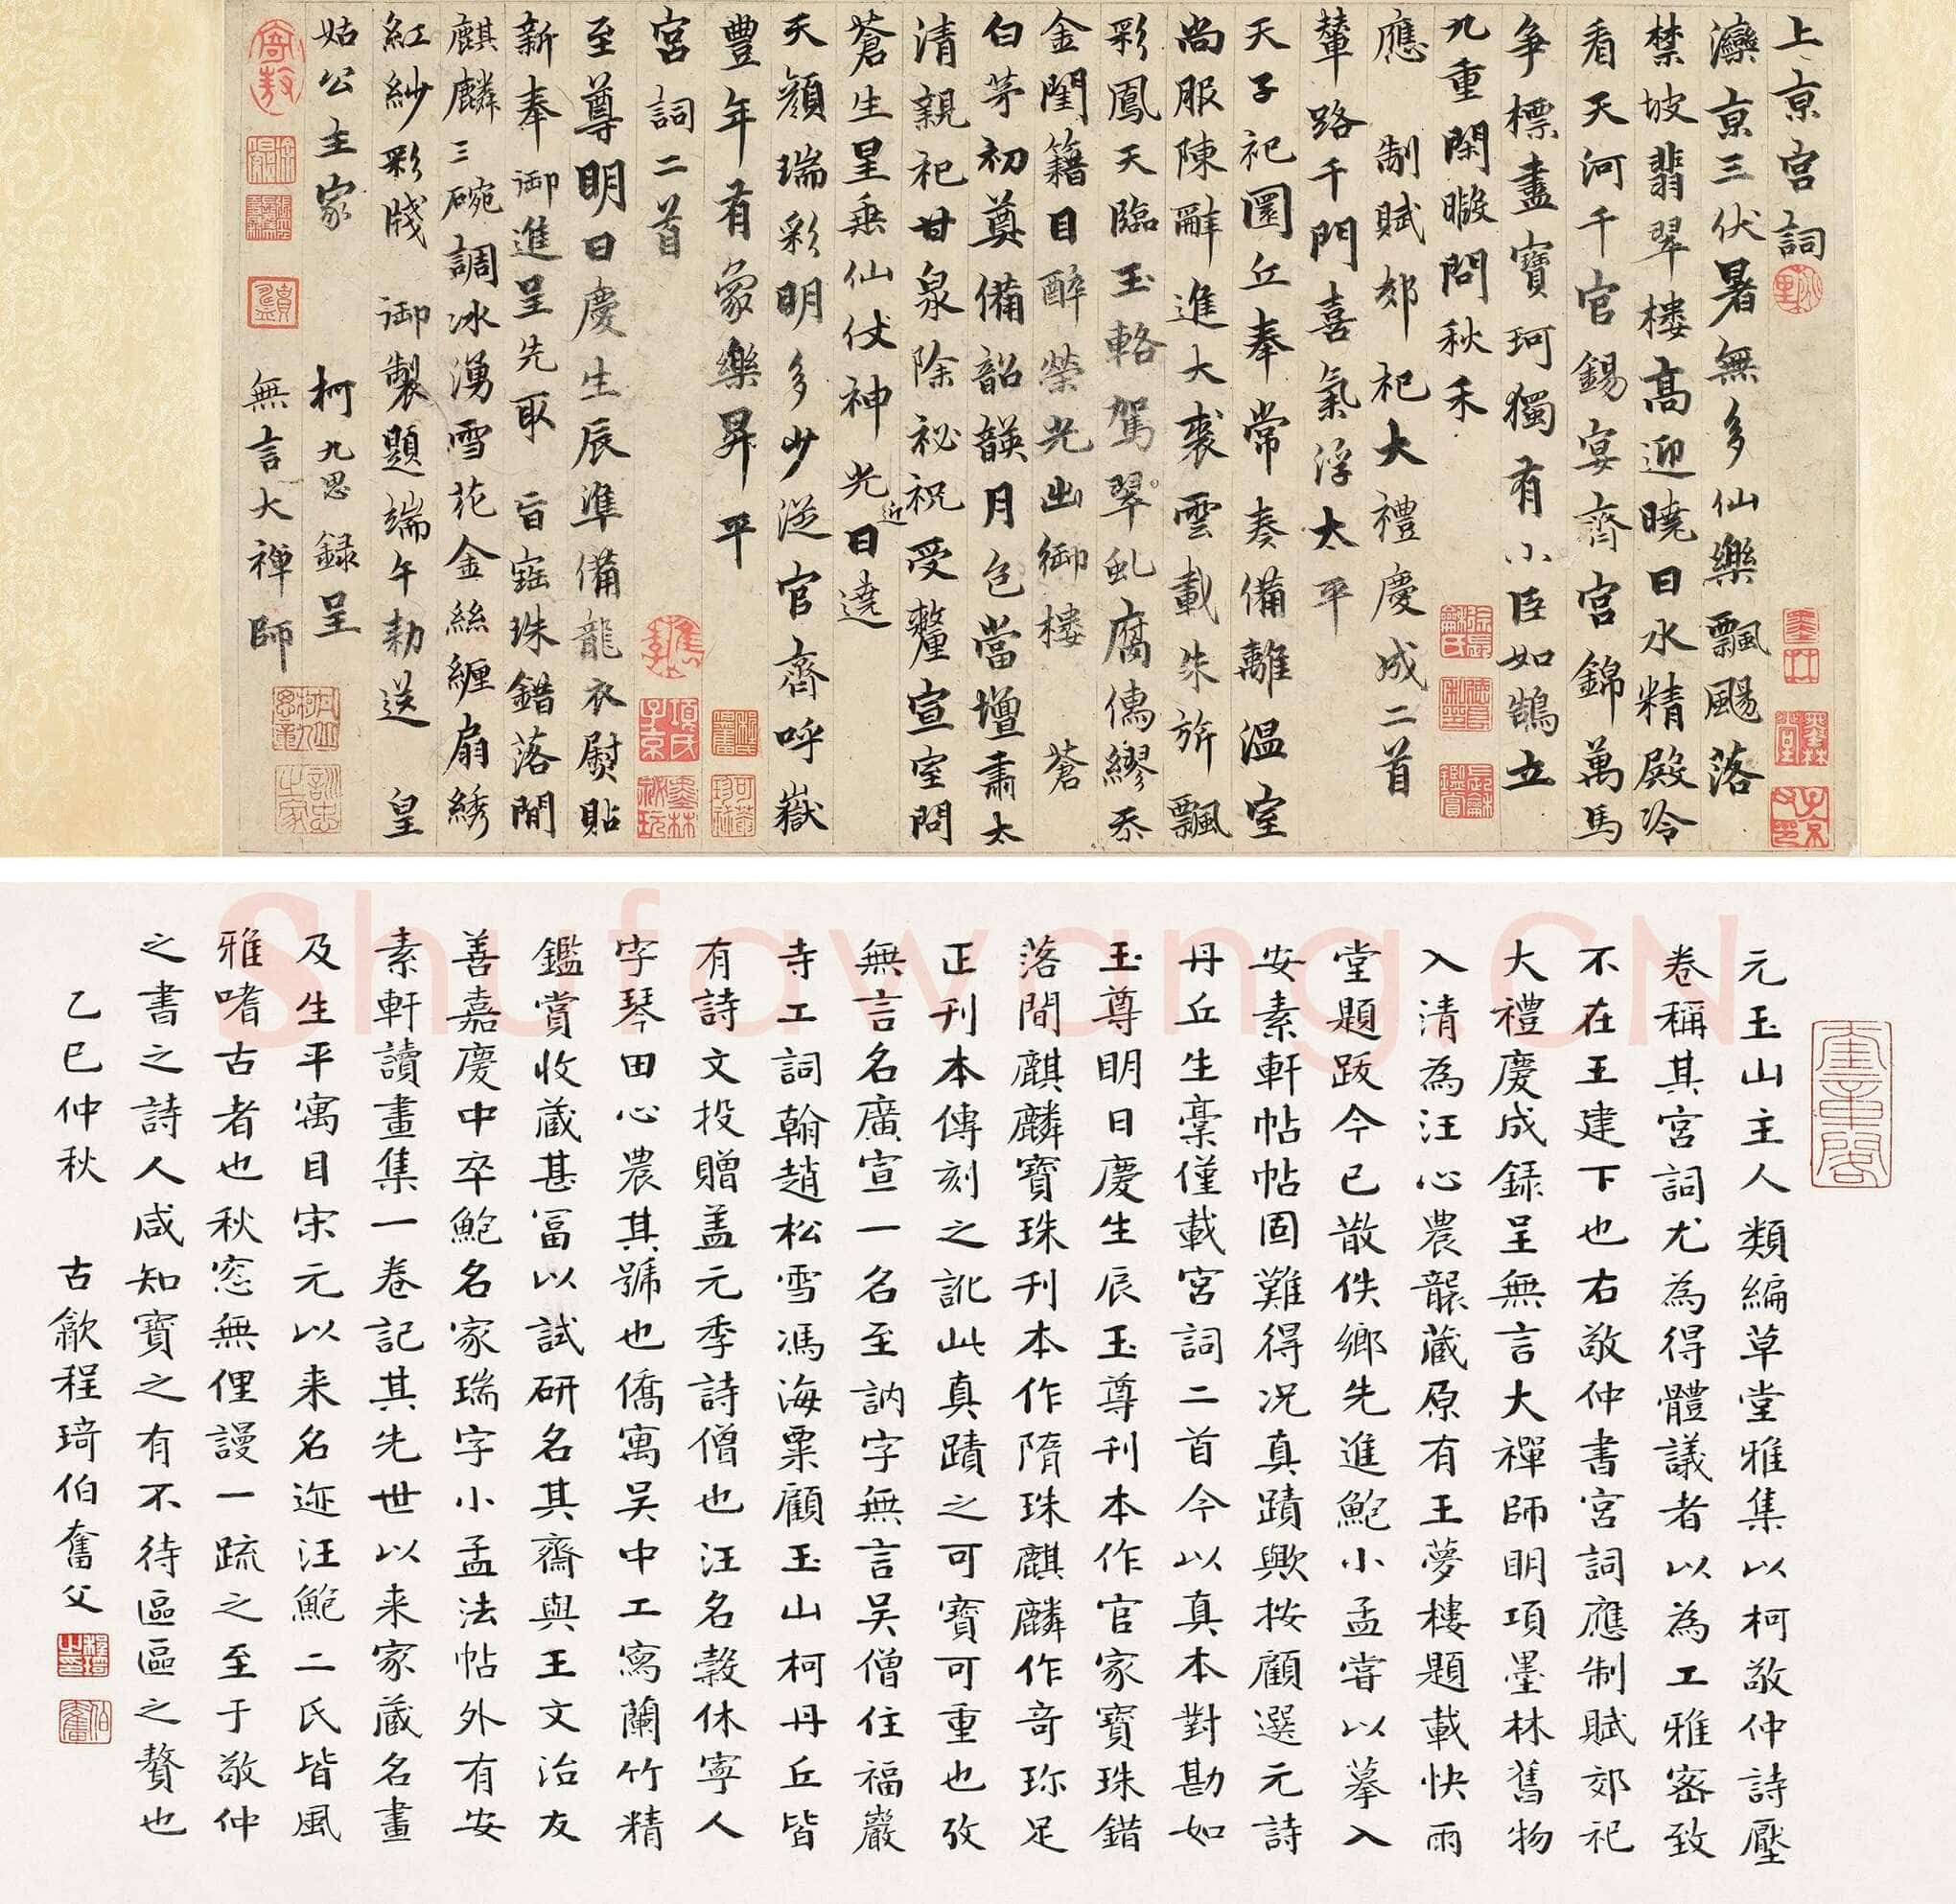 上京宮詞
灤京三伏暑無多仙樂飄颺落
禁坡翡翠樓高迎曉日水精殿冷
看天河千官錫宴齊宮錦萬馬
爭標盡寶珂獨有小臣如鵠立
九重閑暇問秋禾
應制賦郊祀大禮慶成二首
輦路千門喜氣浮太平
天子祀圜丘奉常奏備離溫室
尚服陳辭進大裘雲載朱旂飄
彩鳳天臨玉輅駕翠虬腐儒繆忝
金閨籍目醉榮光出御樓 蒼
白茅初奠備韶韺月色當壇肅太
清親祀甘泉除祕祝受釐宣室問
蒼生星垂仙仗神光近日遶
天顏瑞彩明多少從官齊呼嶽
豐年有象樂昇平
宮詞二首
至尊明日慶生辰準備龍衣熨貼
新奉御進呈先取旨寶珠錯落間
麒麟三碗調冰湧雪花金絲纏扇綉
紅紗彩牋御製題端午勑送皇
姑公主家
柯九思錄呈
無言大禅師
元玉山主人類編草堂雅集以柯敬仲詩壓
卷稱其宮詞尤為得體議者以為工雅密致
不在王建下也右敬仲書宮詞應制賦郊祀
大禮慶成録呈無言大禪師明項墨林舊物
入清為汪心農龔藏原有王夢樓題載快雨
堂題跋今已散佚鄉先進鮑小孟嘗以摹入
安素軒帖帖固難得况真蹟歟按顧選元詩
丹丘生稾僅載宮詞二首今以真本對勘如
玉尊明日慶生辰玉尊刊本作官家寶珠錯
落間麒麟寶珠刊本作隋珠麒麟作奇珎足
正刊本傳刻之訛此真蹟之可寶可重也攷
無言名廣宣一名至訥字無言吳僧住福巖
寺工詞翰趙松雪馮海粟顧玉山柯丹丘皆
有詩文投贈盖元季詩僧也汪名穀休寧人
字琴田心農其號也僑寓吴中工寫蘭竹精
鑑賞收蔵甚冨以試研名其齋與王文治友
善嘉慶中卒鮑名家瑞字小孟法帖外有安
素軒讀畫集一卷記其先世以来家蔵名畫
及生平寓目宋元以来名迹汪鮑二氏皆風
雅嗜古者也秋窓無俚謾一疏之至于敬仲
之書之詩人咸知寶之有不待區區之贅也
乙巳仲秋 古歙程琦伯奮父
Shufawang.CN